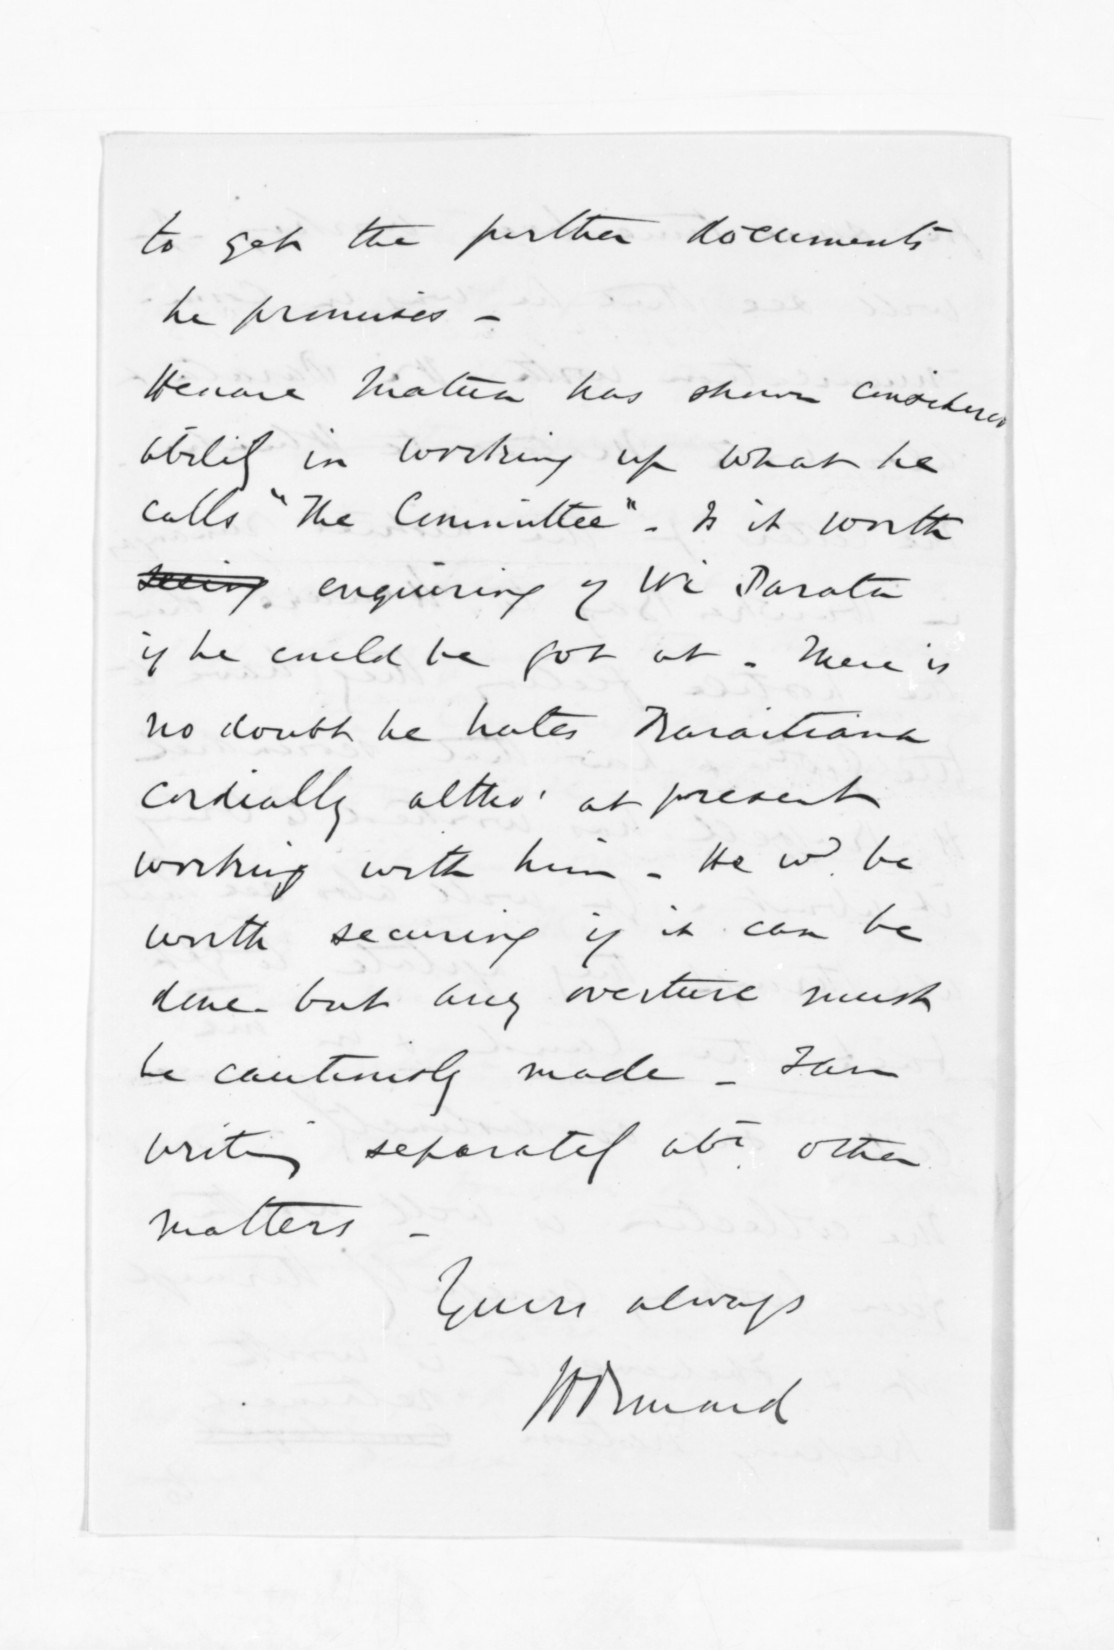 to get the further documents
he promises -
Henare Matua has shown considerable
ability in working up what he
calls "The Committee" - Is it worth
seeing enquiring of Wi Parata
if he could be got at - There is
no doubt he hates Karaitiana
cordially altho' at present
working with him - He wd. be
worth securing if it can be
done - but any overture must
be cautiously made - I am
writing separately abt. other
matters -
Yours always